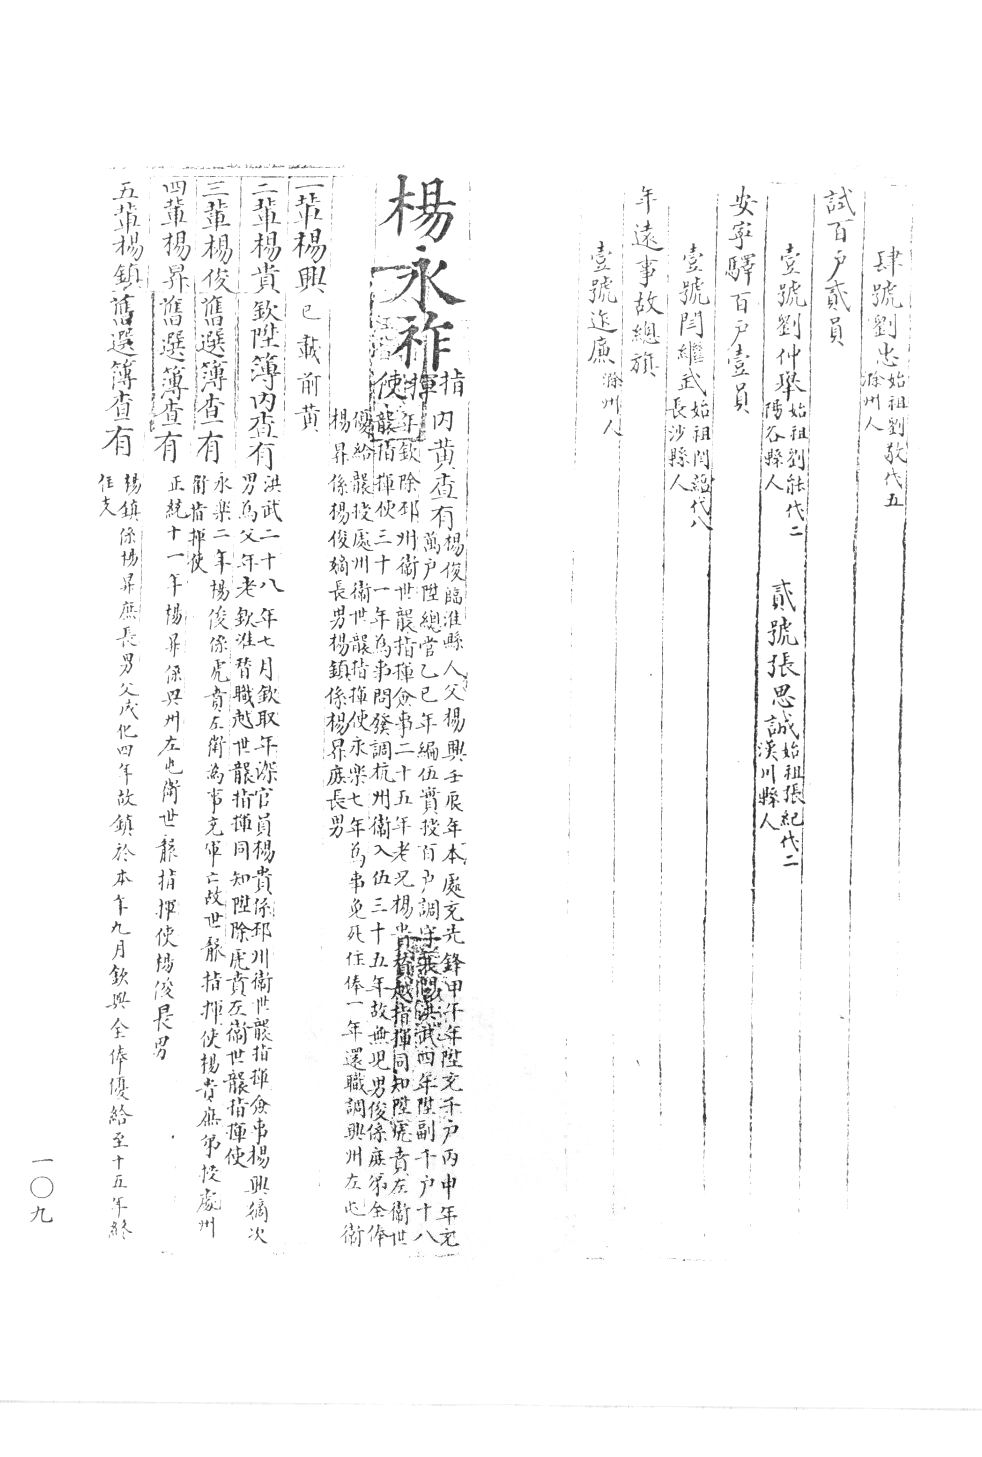 肆號劉忠始祖劉敬代五
滁州人
試百戶貳員
壹號劉仲舉始祖劉能代二
陽谷縣人
貳號張思誠始祖張紀代二
溪川縣人
安寧驛百戶壹員
壹號閆繼武始祖閆 代八
長沙縣人
年遠事故總旗
壹號迮廉滁州人
楊永祚指揮使
內黃查有楊俊臨淮縣人父楊興壬辰年本處充先鋒甲午年陞充千戶丙申年充
萬戶陞總管乙巳年編伍實授百戶調守 洪武四年陞副千戶十八
年欽除邳州衛世襲指揮僉事二十五年老兄楊貴替越指揮同知陞虎賁左衛世
襲指揮使三十一年為事問發調杭州衛入伍三十五年故無兒男俊係庶弟全俸
優給襲授處州衛世襲指揮使永樂七年為事免死住俸一年還職調興州左屯衛
楊昇係楊俊嫡長男楊鎮係楊昇庶長男
一輩楊興已載前黃
二輩楊貴欽陞簿內查有洪武二十八年七月欽取年深官員楊貴係邳州衛世襲指揮僉事楊興嫡次
男為父年老欽准替職越世襲指揮同知陞除虎賁左衛世襲指揮使
三輩楊俊舊選簿查有永樂二年楊俊係虎賁左衛為事充軍亡故世襲指揮使楊貴庶弟授處州
衛指揮使
四輩楊昇舊選簿查有正統十一年楊昇係興州左屯衛世襲指揮使楊俊長男
五輩楊鎮舊選簿查有楊鎮係楊昇庶長男父成化四年故鎮於本年九月欽與全俸優給至十五年終
住支
一〇九